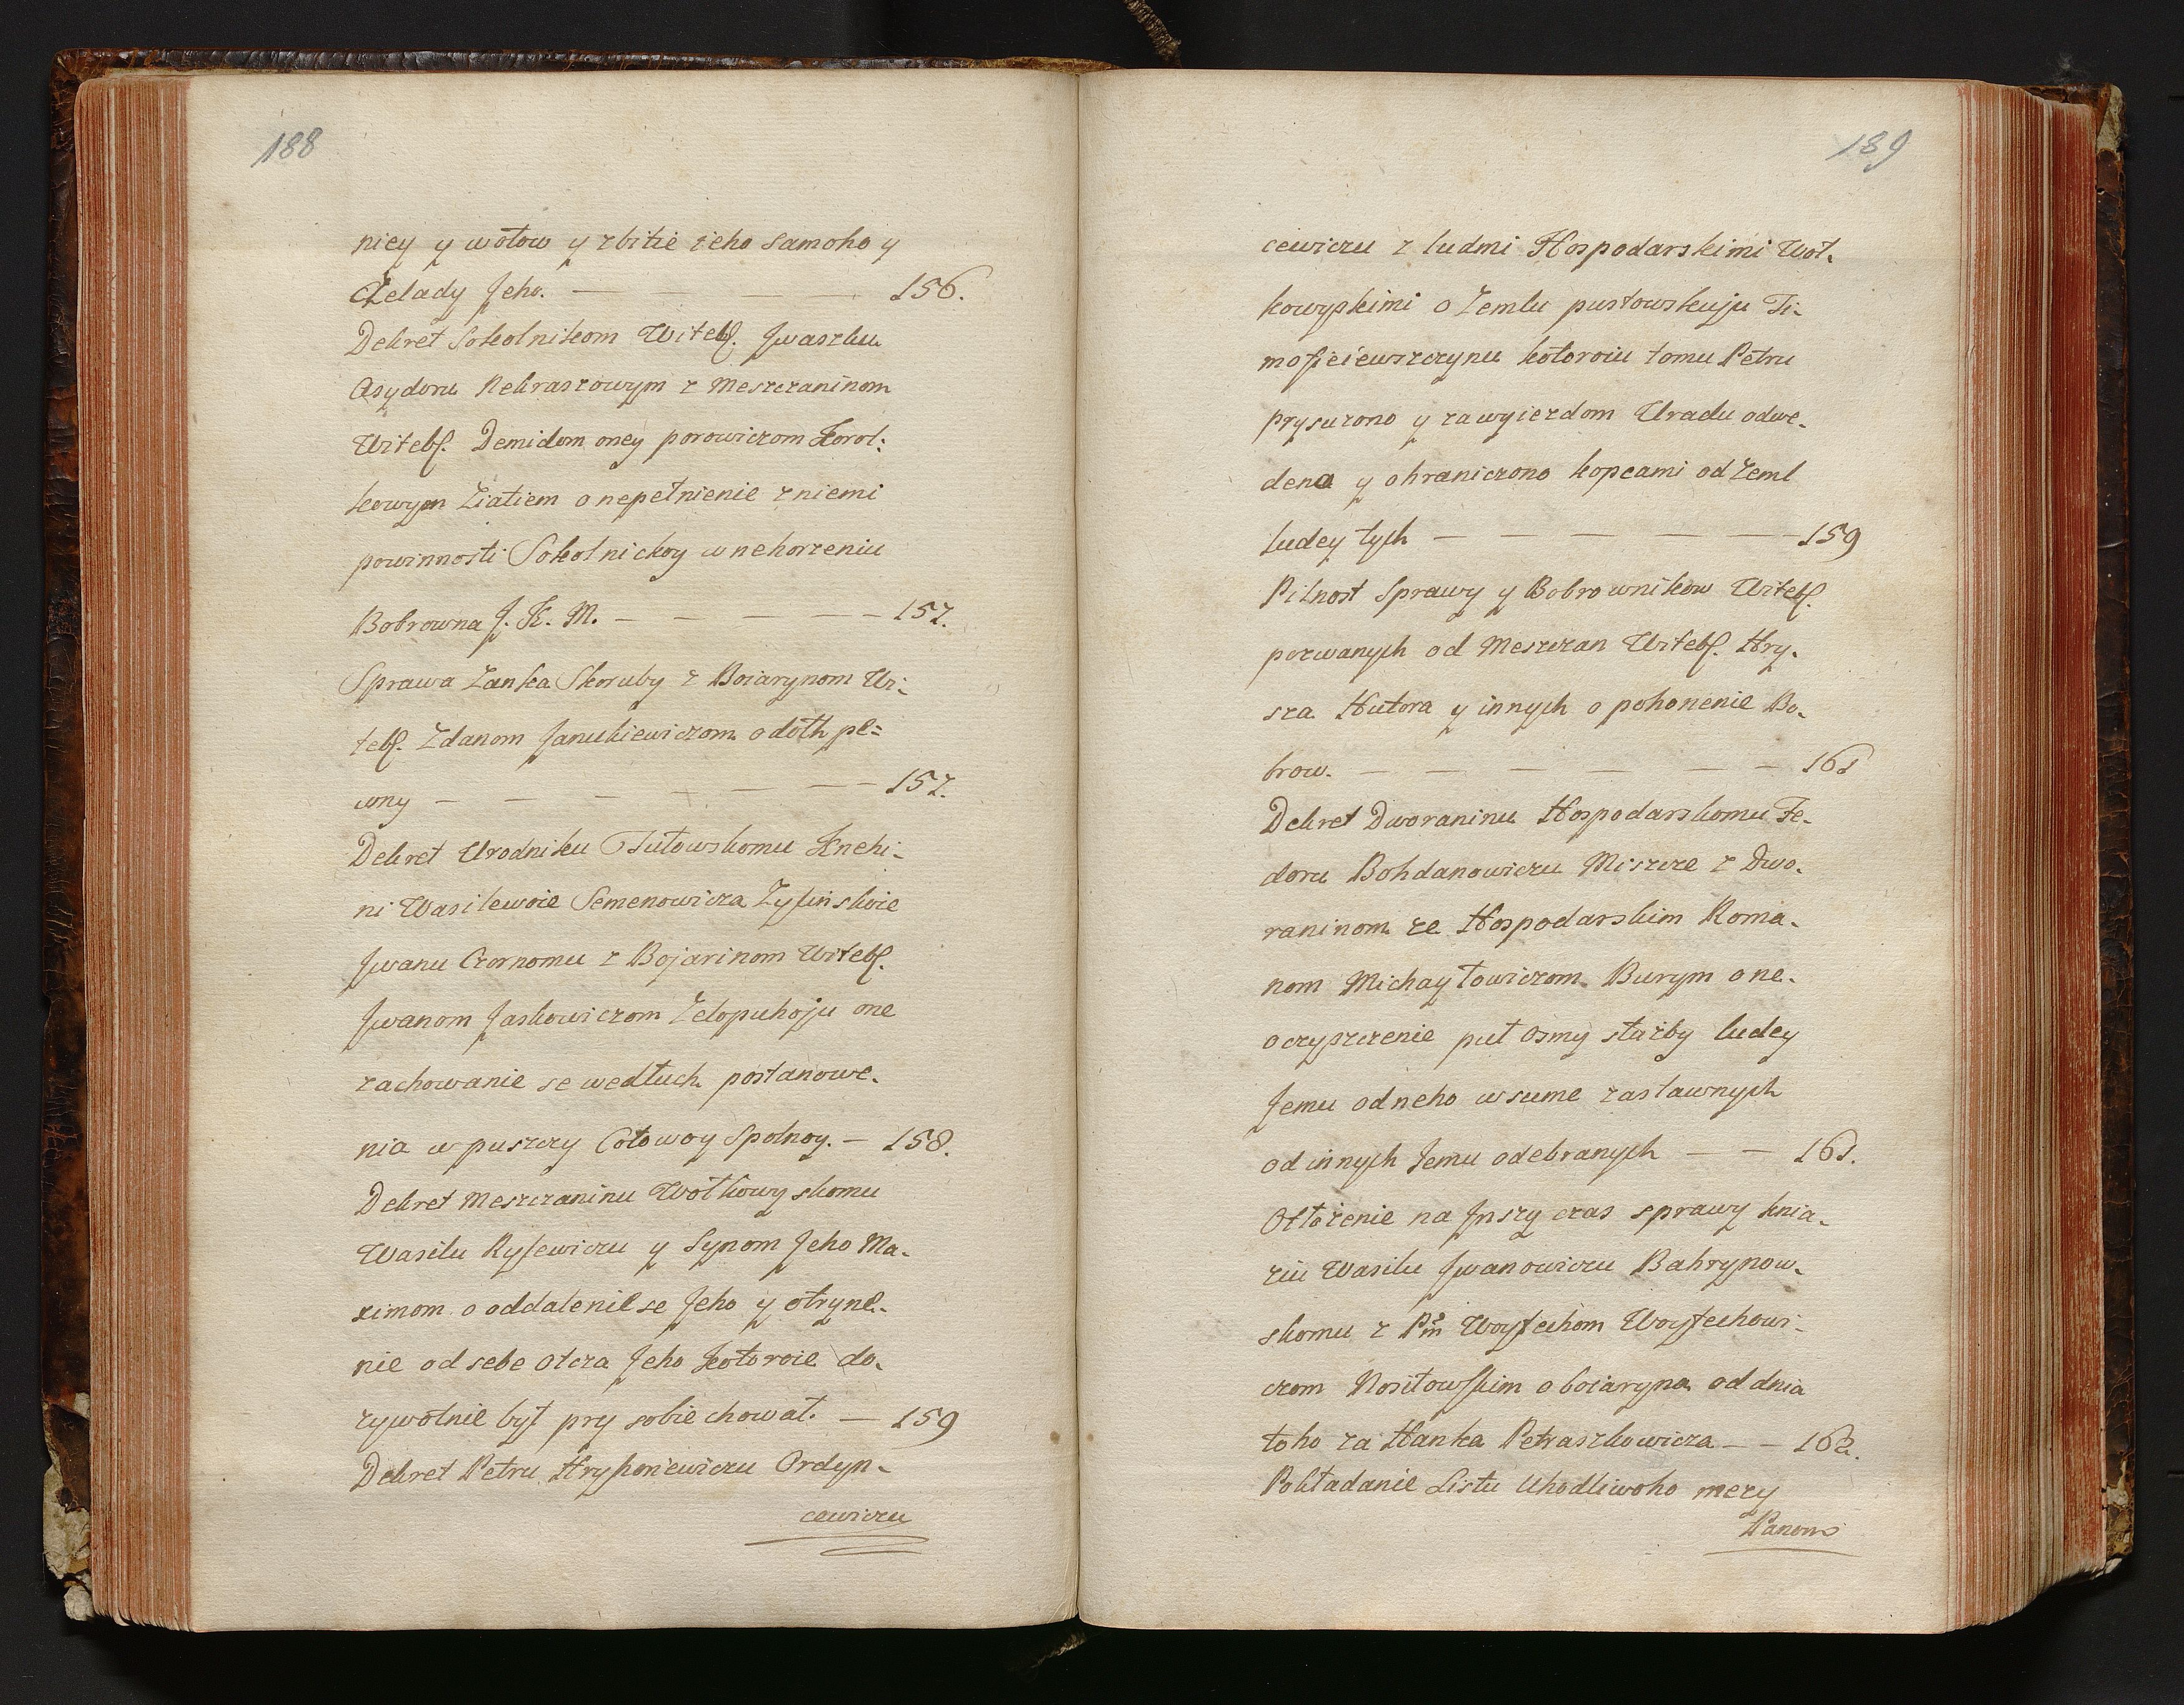 188
nicy y wołow y zbitie ieho samoho y
Czelady Jeho. — — — — 156.
Dekret Sokolnikom Witebs. Jwaszku
Asydoru Nekraszowym z Meszczaninom
Witebs. Demidom oney porowiczom Korol:
kowym Ziatiem o nepełnienie z niemi
powinnosti Sokolnickoy w nehorzeniu
Bobrowna J. K. M. — — — — 157.
Sprawa Zanka Skoruby z Boiarynom Wi-
tebs. Zdanom Janukiewiczom o doth ple=
wny — — — — — — 157.
Dekret Urodniku Tutowskomu Knehi-
ni Wasilewoie Semenowicza Zylinskoie
Jwanu Czornomu z Bojarinom Witebs.
Jwanom Jaskowiczom Zelopuhoju o ne
zachowanie se wedłuch postanowe-
nia w puszczy Cołowoy Spolnoy. — 158.
Dekret Meszczaninu Wołkowyskomu
Wasilu Rysewiczu y Synom Jeho Ma-
ximom o oddalenie se Jeho y otryne-
nie od sebe otcza Jeho kotoroie do-
zywotnie był pry sobie chował. — 159
Dekret Petru Hryhoriewiczu Ordyn-
cewiczu
189
cewiczu z ludmi Hospodarskimi Woł-
kowyskimi o Zemlu pustowskuju Ti-
mofieiewszczynu kotoroiu tomu Petru
prysuzono y za wyiezdom Uradu odwe-
dena y ohraniczono kopcami od Zeml
ludey tych — — — — — 159
Pilnost Sprawy y Bobrownikow Witebs.
pozwanych od Meszczan Witebs. Hry-
sza Hutora y innych o pohonenie Bo-
brow. — — — — — — 161
Dekret Dworaninu Hospodarskomu Fe-
doru Bohdanowiczu Miszcze z Dwo-
raninom ze Hospodarskim Roma-
nom Michayłowiczom Burym o ne-
oczyszczenie puł osmy słażby ludey
Jemu od neho w sume zastawnych
od innych Jemu odebranych — — 161.
Otłożenie na Jnszy czas sprawy knia-
ziu Wasilu Jwanowiczu Bahrynow-
skomu z Pm Woytechom Woytechowi-
czom Nosiłowskim o boiaryna od dnia
toho za Hanka Petraszkowicza — — 162.
Pokładanie Listu Uhodliwoho mezy
Panom